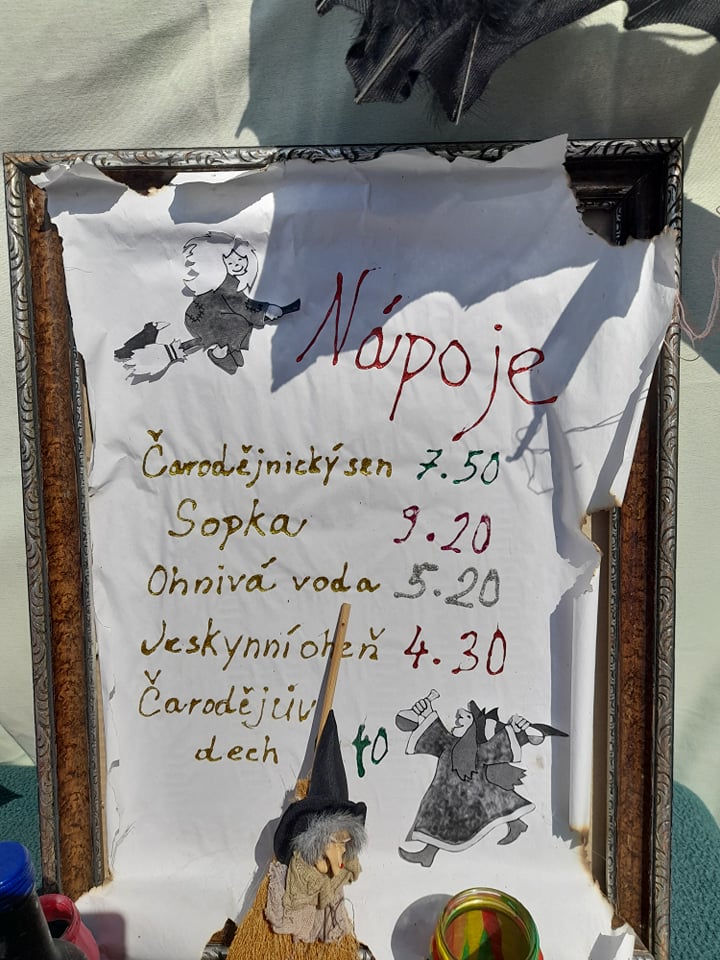 Nápoje
Čarodějnický sen 7.50
Sopka 9.20
Ohnivá voda 5.20
Jeskynní oheň 4.30
Čarodějův
dech 10